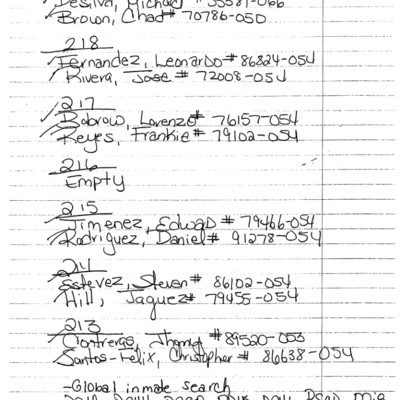 Desilva, Michael #55581-066
Brown, Chad # 70786-050
218
Fernandez, Leonardo # 86824-054
Rivera, Jose # 72008-054
217
Bobrow, Lorenzo # 76157-054
Reyes, Frankie # 79102-054
216
Empty
215
Jimenez, Edward # 79466-054
Rodriguez, Daniel # 91278-054
214
Estevez, Steven # 86102-054
Hill, Jaquez # 79455-054
213
Contreras, #89520-053
Santos-Felix, Christopher # 86638-054
-Global inmate search